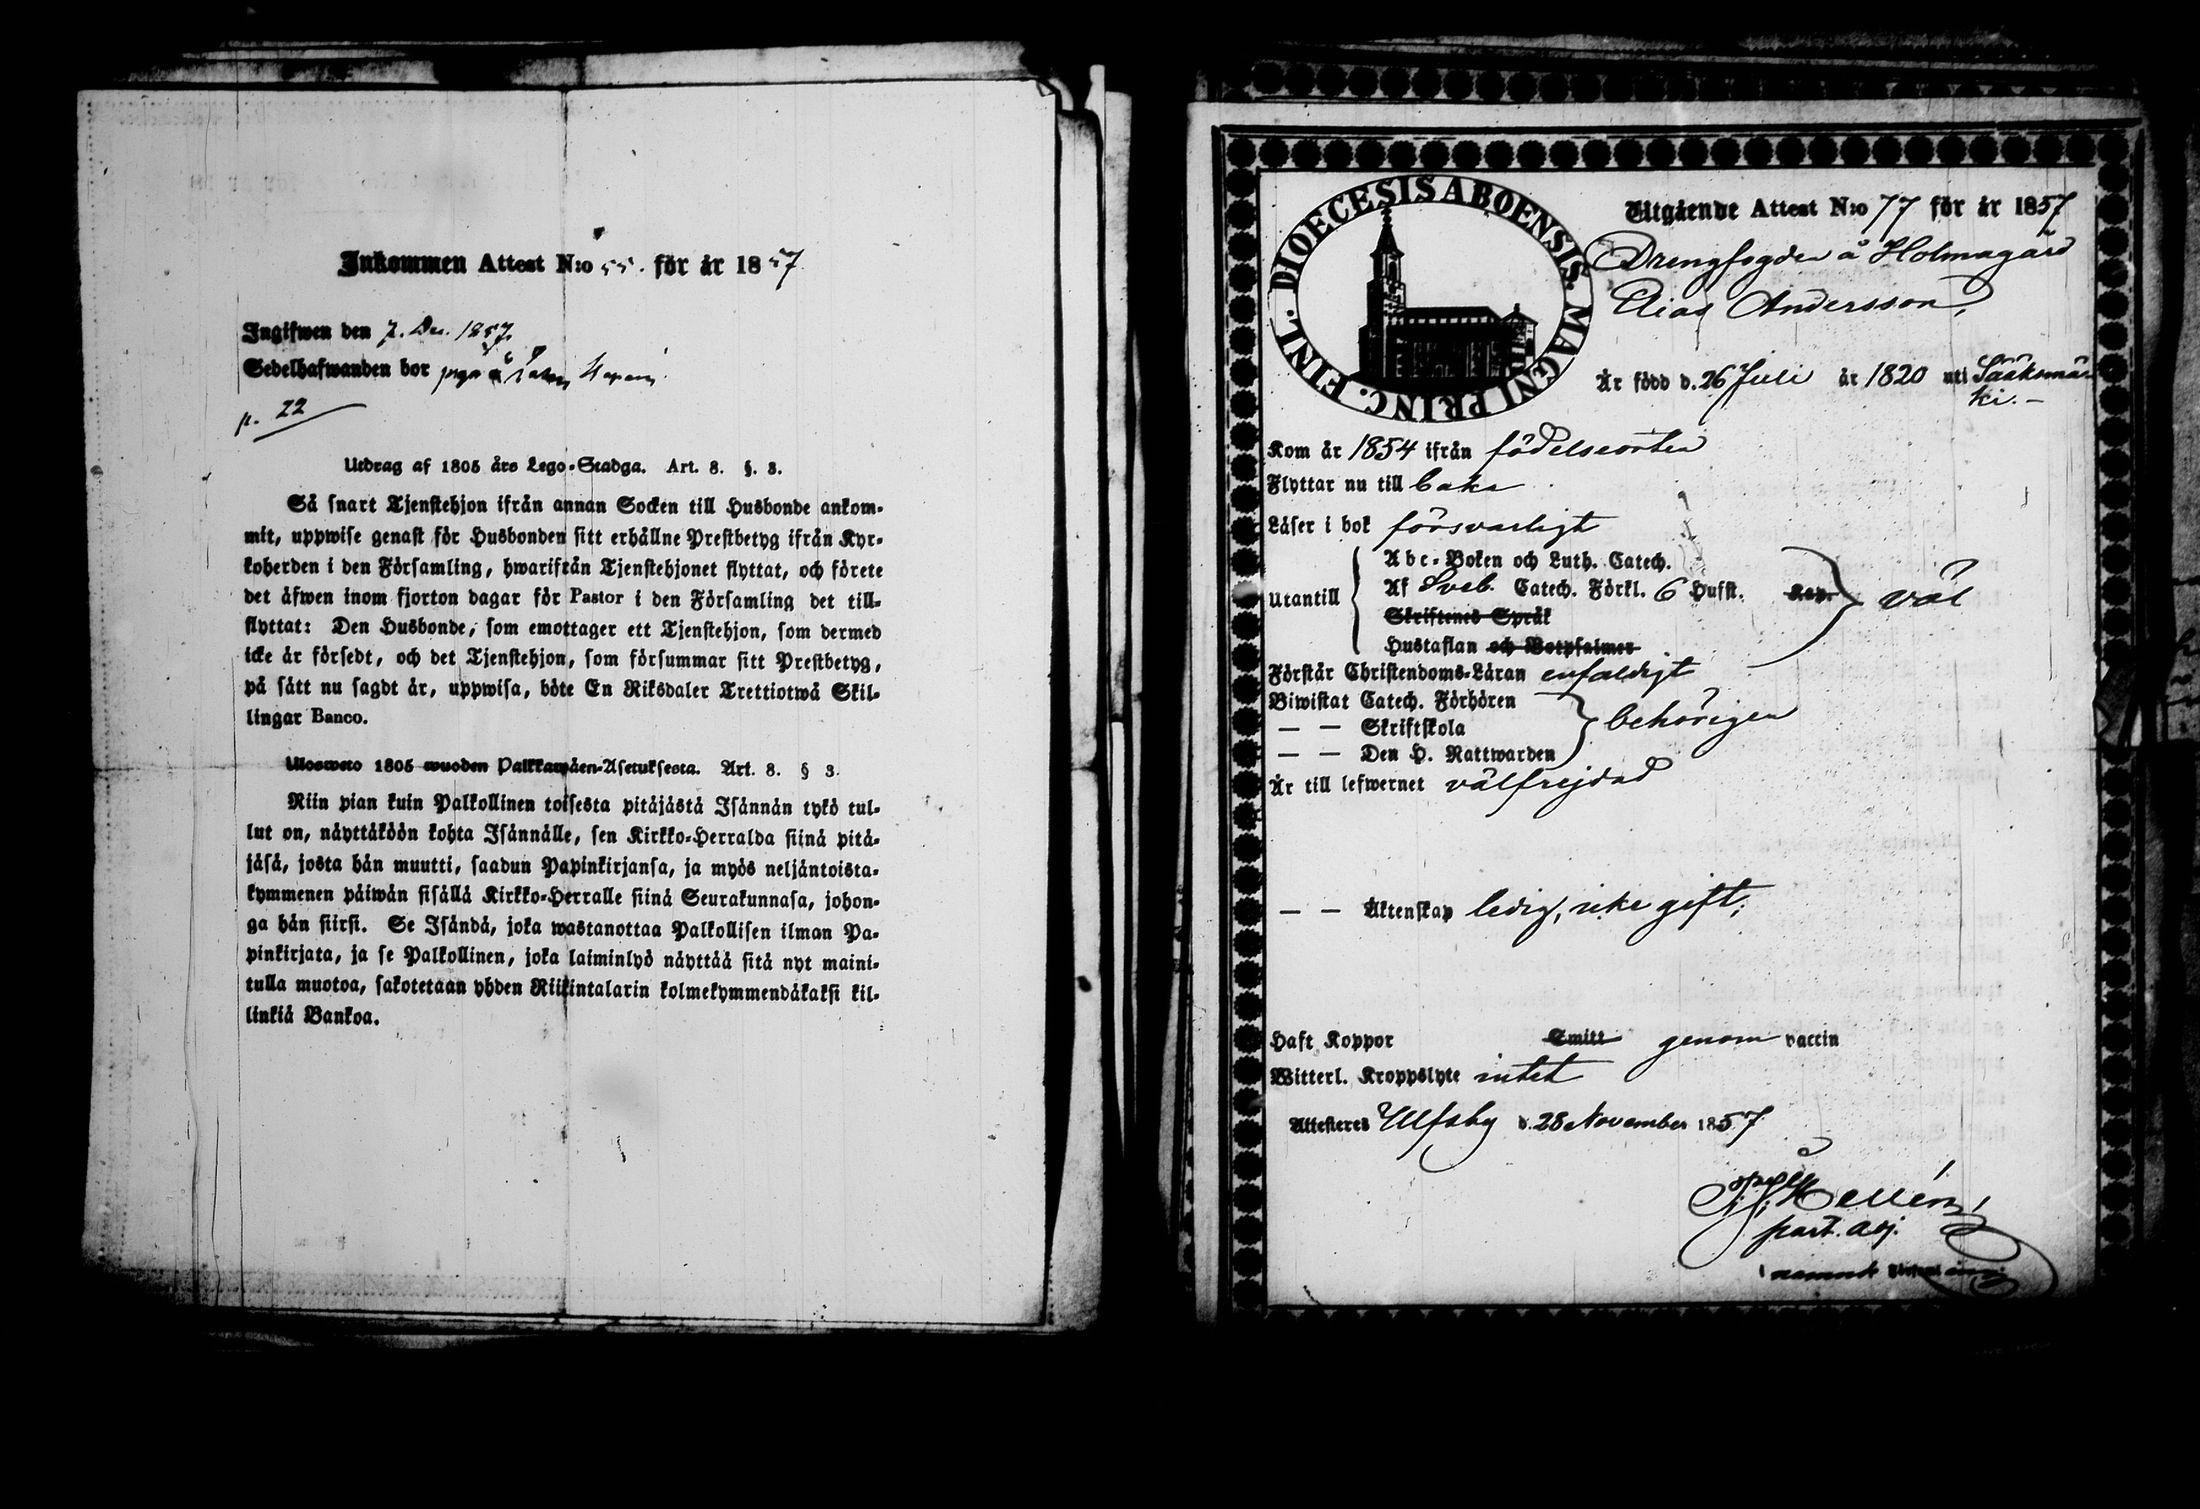 Inkommen Attest N:o 55. för år 1857.
Ingifwen den 7. Dec. 1857.
Sedelhafwanden bor
p. 22
Utdrag af 1805 års Lego-Stadga. Art. 8. §. 3.
Så snart Tjenstehjon ifrån annan Socken till Husbonde ankom-
mit, uppwise genast för Husbonden sitt erhållne Prestbetyg ifrån Kyr-
koherden i den Församling, hwarifrån Tjenstehjonet flyttat, och förete
det äfwen inom fjorton dagar för Pastor i den Församling det till-
flyttat: Den Husbonde, som emottager ett Tjenstehjon, som dermed
icke är försedt, och det Tjenstehjon, som försummar sitt Prestbetyg,
på sätt nu sagdt är, uppwisa, böte En Riksdaler Trettiotwå Skil-
lingar Banco.
Ulosweto 1805 wuoden Palkkawäen-Asetuksesta. Art. 8. § 3.
Niin pian kuin Palkollinen toisesta pitäjästä Isännän tykö tul-
lut on, näyttäköön kohta Isännälle, sen Kirkko-Herralda siinä pitä-
jäsä, josta hän muutti, saadun Papinkirjansa, ja myös neljäntoista-
kymmenen päiwän sisällä Kirkko-Herralle siinä Seurakunnasa, johon-
ga hän siirsi. Se Isändä, joka wastanottaa Palkollisen ilman Pa-
pinkirjata, ja se Palkollinen, joka laiminlyö näyttää sitä nyt maini-
tulla muotoa, sakotetaan yhden Riikintalarin kolmekymmendäkaksi kil-
linkiä Bankoa.
DIOECESIS ABOENSIS. MAGNI PRINC. FINL.
Utgående Attest N:o 77 för år 1857
Drengfogden å Holmagård
Elias Andersson,
Är född d. 26 Juli år 1820 uti Sääksmä-
ki.—
Kom år 1854 ifrån födelseorten
Flyttar nu till baka
Läser i bok försvarligt
Utantill
Abc-Boken och Luth. Catech.
Af Sveb. Catech. Förkl. 6 Hufst. Kap. väl
Skriftenes Språk
Hustaflan och Botpsalmer
Förstår Christendoms-Läran enfaldigt
Biwistat Catech. Förhören
— — Skriftskola behörigen
— — Den H. Nattwarden
Är till lefwernet välfrejdad
— — Äktenskap ledig, icke gift;
Haft Koppor Smitt genom vaccin
Witterl. Kroppslyte intet
Attesteras Ulfsby d. 28 November 1857.
Hellén,
past. adj.